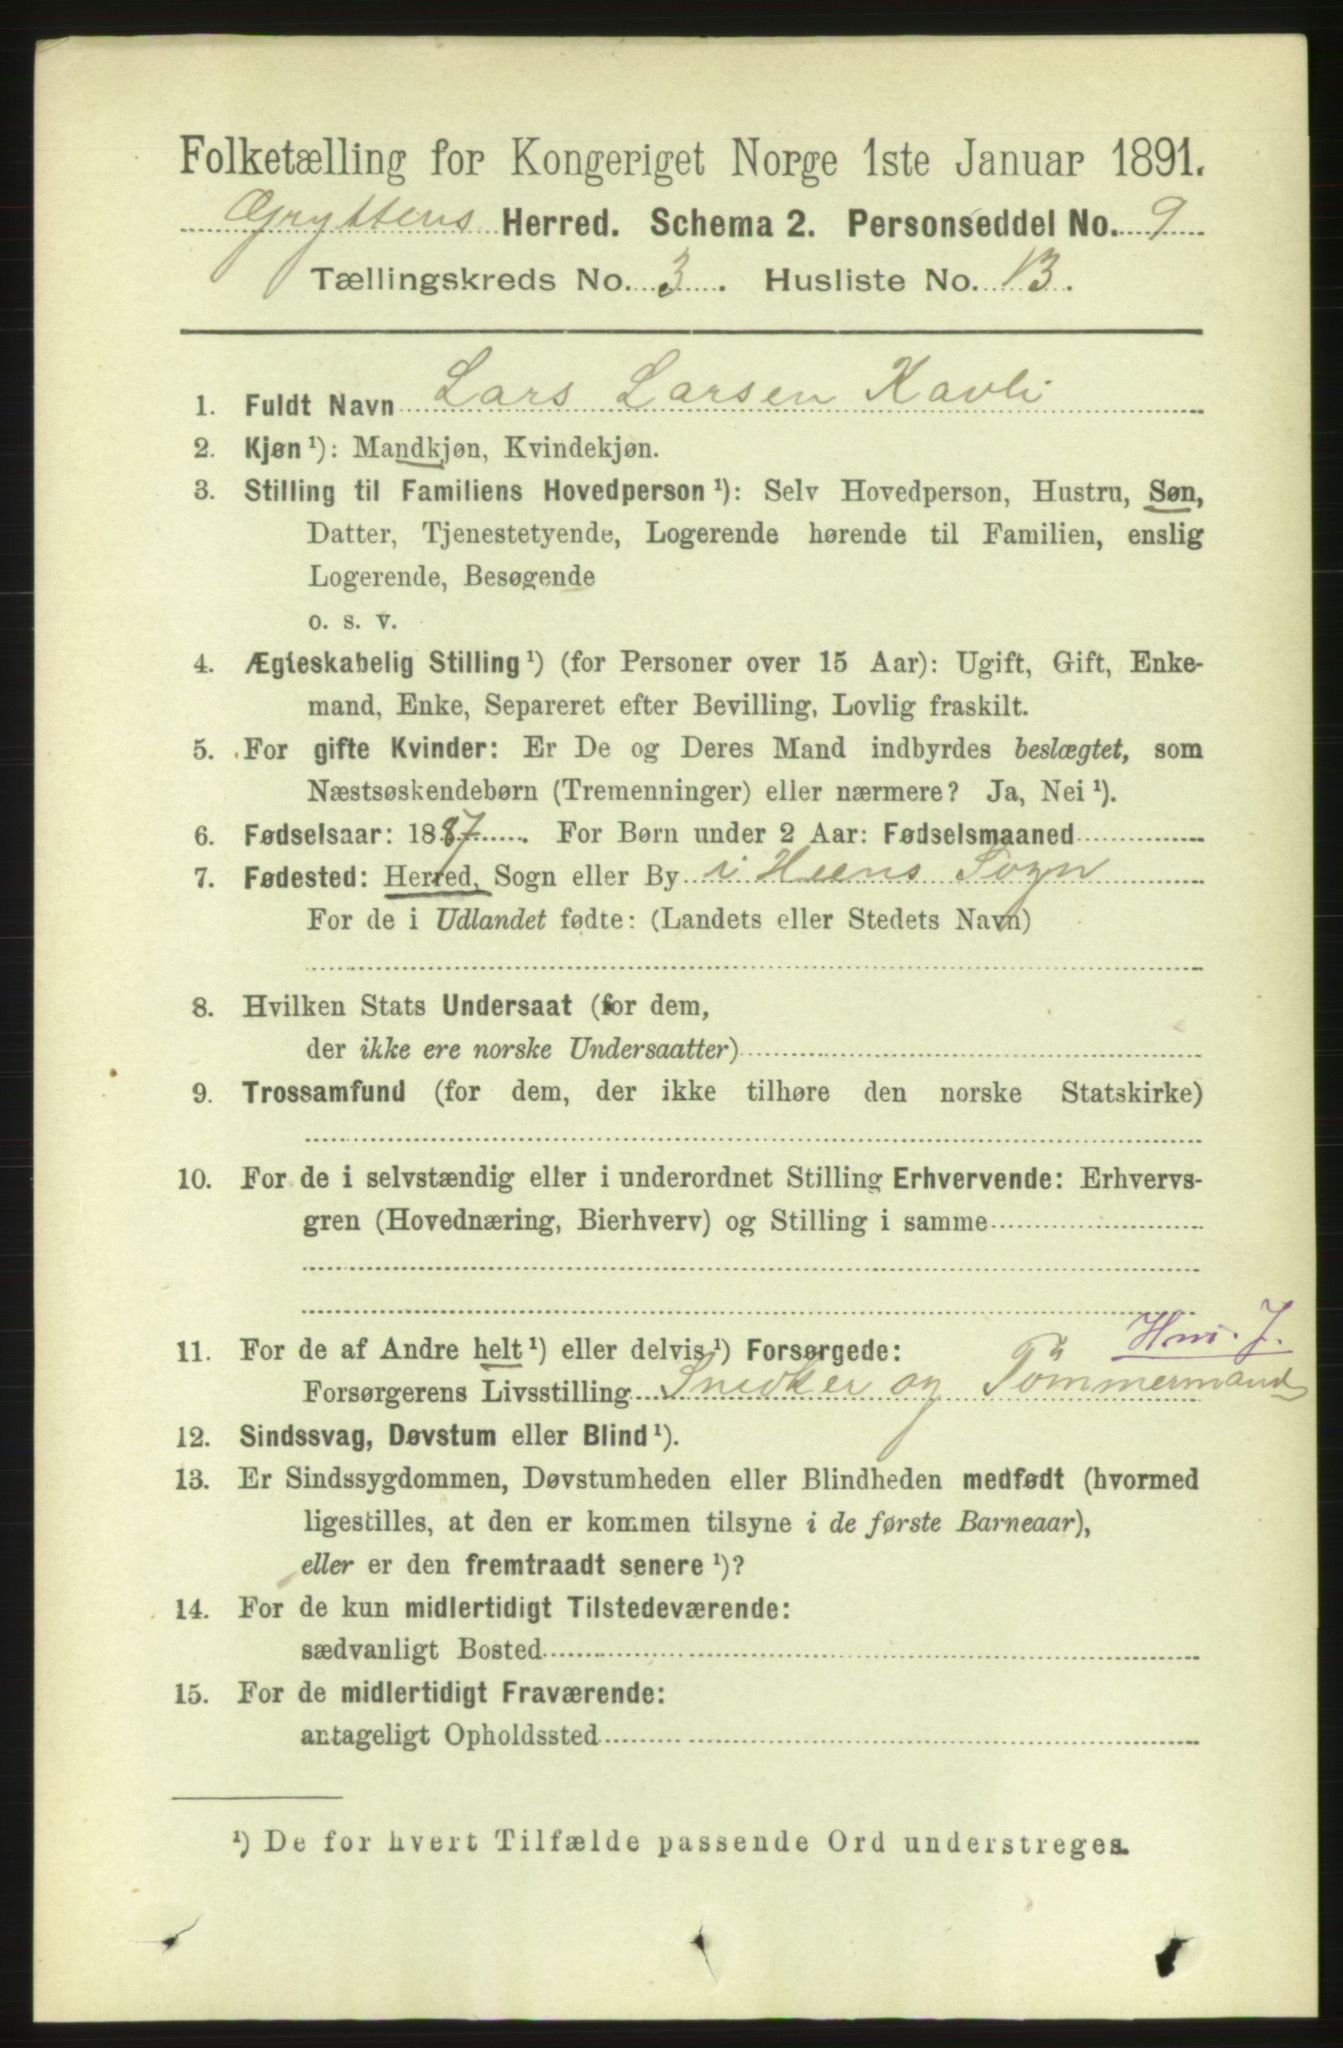 Folketælling for Kongeriget Norge 1ste Januar 1891.
Gryttens Herred. Schema 2. Personseddel No. 9
Tællingskreds No. 3. Husliste No. 13.
1. Fuldt Navn Lars Larsen Kavli
2. Kjøn ¹): Mandkjøn, Kvindekjøn.
3. Stilling til Familiens Hovedperson ¹): Selv Hovedperson, Hustru, Søn,
Datter, Tjenestetyende, Logerende hørende til Familien, enslig
Logerende, Besøgende
o. s. v.
4. Ægteskabelig Stilling ¹) (for Personer over 15 Aar): Ugift, Gift, Enke-
mand, Enke, Separeret efter Bevilling, Lovlig fraskilt.
5. For gifte Kvinder: Er De og Deres Mand indbyrdes beslægtet, som
Næstsøskendebørn (Tremenninger) eller nærmere? Ja, Nei ¹).
6. Fødselsaar: 1887. For Børn under 2 Aar: Fødselsmaaned
7. Fødested: Herred, Sogn eller By i Heens Sogn
For de i Udlandet fødte: (Landets eller Stedets Navn)
8. Hvilken Stats Undersaat (for dem,
der ikke ere norske Undersaatter)
9. Trossamfund (for dem, der ikke tilhøre den norske Statskirke)
10. For de i selvstændig eller i underordnet Stilling Erhvervende: Erhvervs-
gren (Hovednæring, Bierhverv) og Stilling i samme
11. For de af Andre helt ¹) eller delvis ¹) Forsørgede:
Forsørgerens Livsstilling Snedker og Tömmermand
12. Sindssvag, Døvstum eller Blind ¹).
13. Er Sindssygdommen, Døvstumheden eller Blindheden medfødt (hvormed
ligestilles, at den er kommen tilsyne i de første Barneaar),
eller er den fremtraadt senere ¹)?
14. For de kun midlertidigt Tilstedeværende:
sædvanligt Bosted
15. For de midlertidigt Fraværende:
antageligt Opholdssted
¹) De for hvert Tilfælde passende Ord understreges.